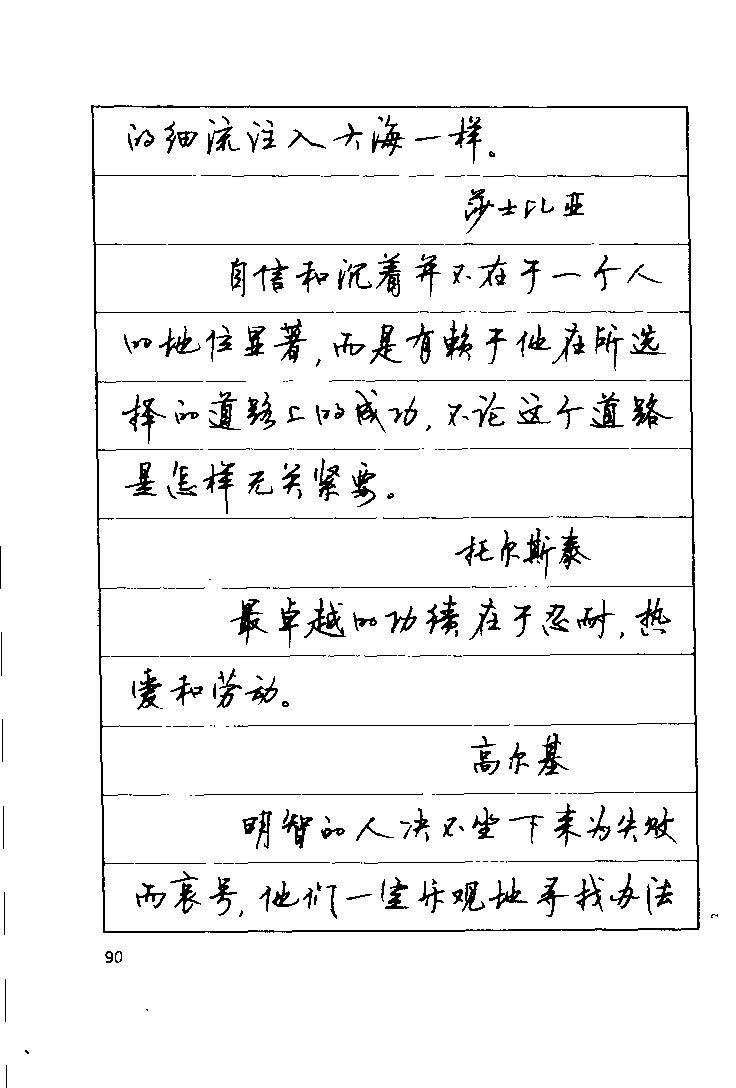 的细流注入大海一样。
莎士比亚
自信和沉着并不在于一个人
的地位显著,而是有赖于他在所选
择的道路上的成功,不论这个道路
是怎样无关紧要。
托尔斯泰
最卓越的功绩在于忍耐,热
爱和劳动。
高尔基
明智的人决不坐下来为失败
而哀号,他们一定乐观地寻找办法
90